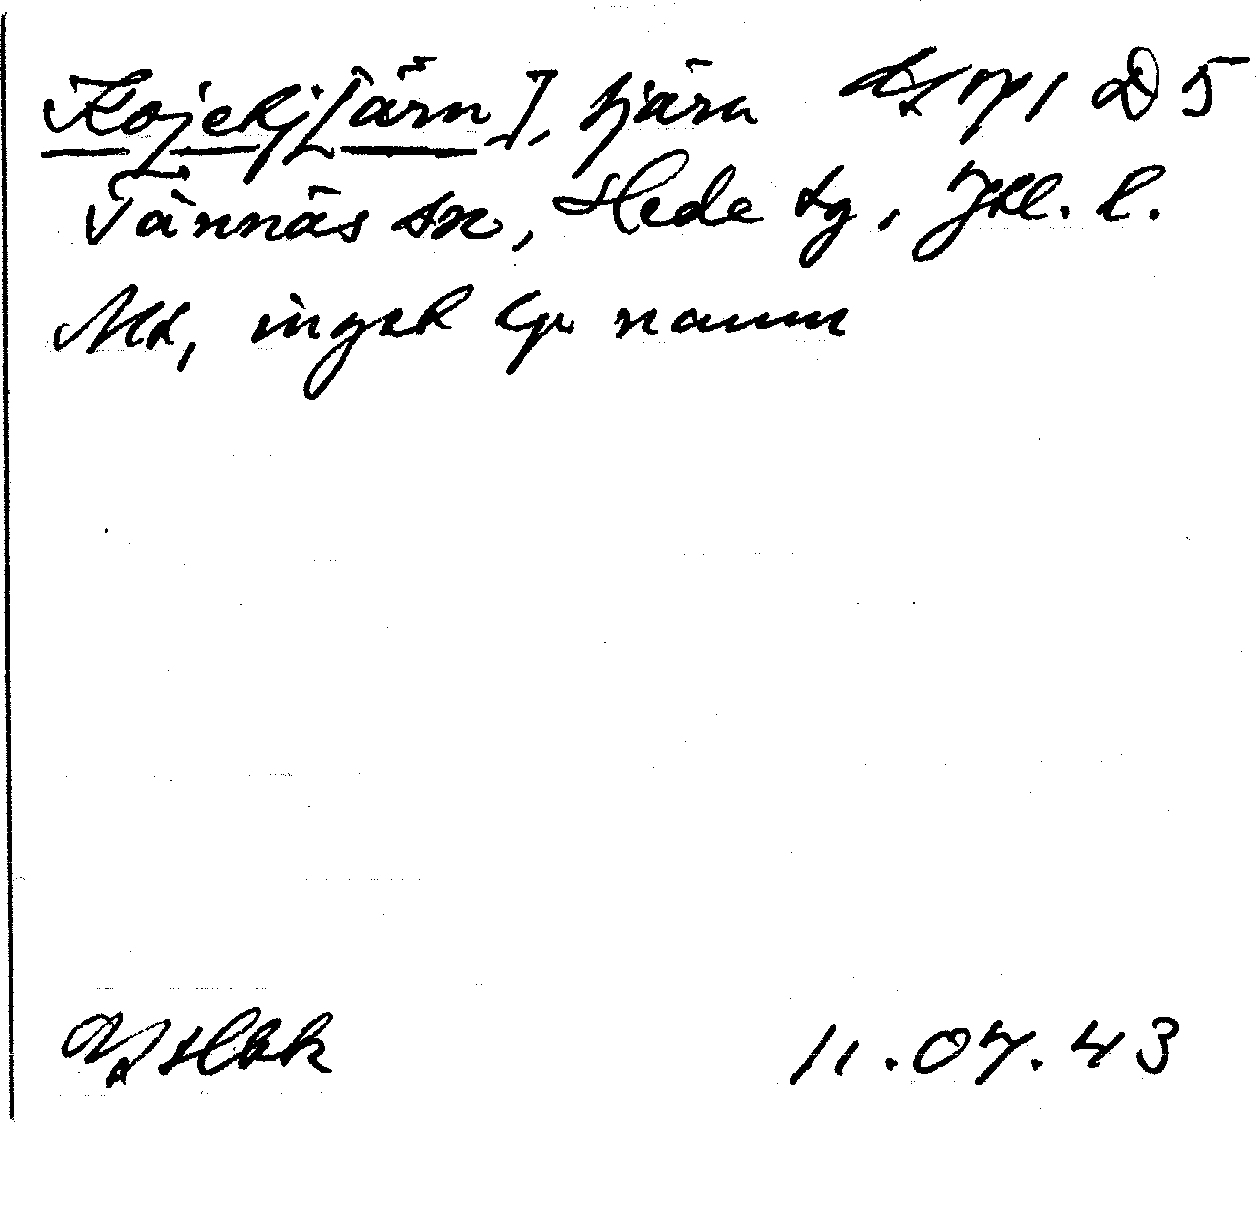 Kojekj[ärn], tjärn D 5
Tännäs sn, Hede tg, Jtl. l.
Mt, inget lp. namn
11.07.43